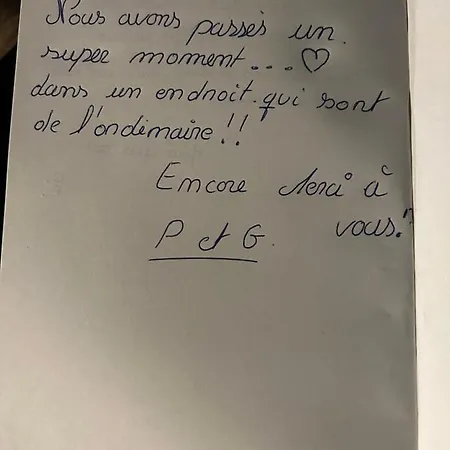 Nous avons passés un
super moment... ♡
dans un endroit qui sont
de l'ordinaire !!
Encore Merci à
vous !
P et G.